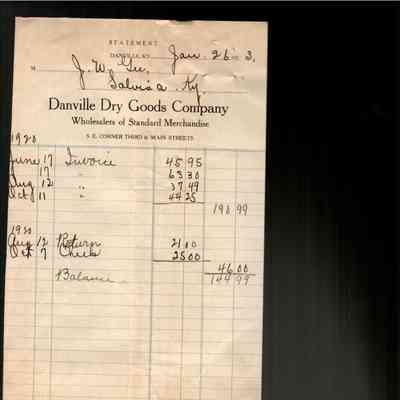 STATEMENT
DANVILLE, KY. Jan. 26 3.
M J. W. Gee,
Salvisa Ky.
Danville Dry Goods Company
Wholesalers of Standard Merchandise
S. E. CORNER THIRD & MAIN STREETS
1920
June 17 Invoice 45 95
17 " 63 30
Aug 12 " 37 49
Oct 11 " 44 25
190 99
1920
Aug 12 Return 21 00
Oct 7 Check 25 00
46 00
Balance 144 99